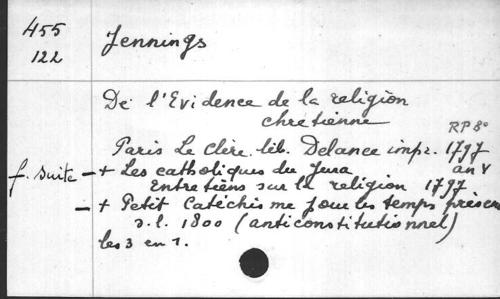 455
122
Jennings
De l'Evidence de la religion
chretienne
RP 8°
Paris Le Clère. lib. Delance impr. 1797
an V
f. suite - + Les catholiques du Jura
Entretiens sur la religion 1797
- + Petit Catéchisme pour les temps présen
s.l. 1800 (anticonstitutionnel)
les 3 en 1.